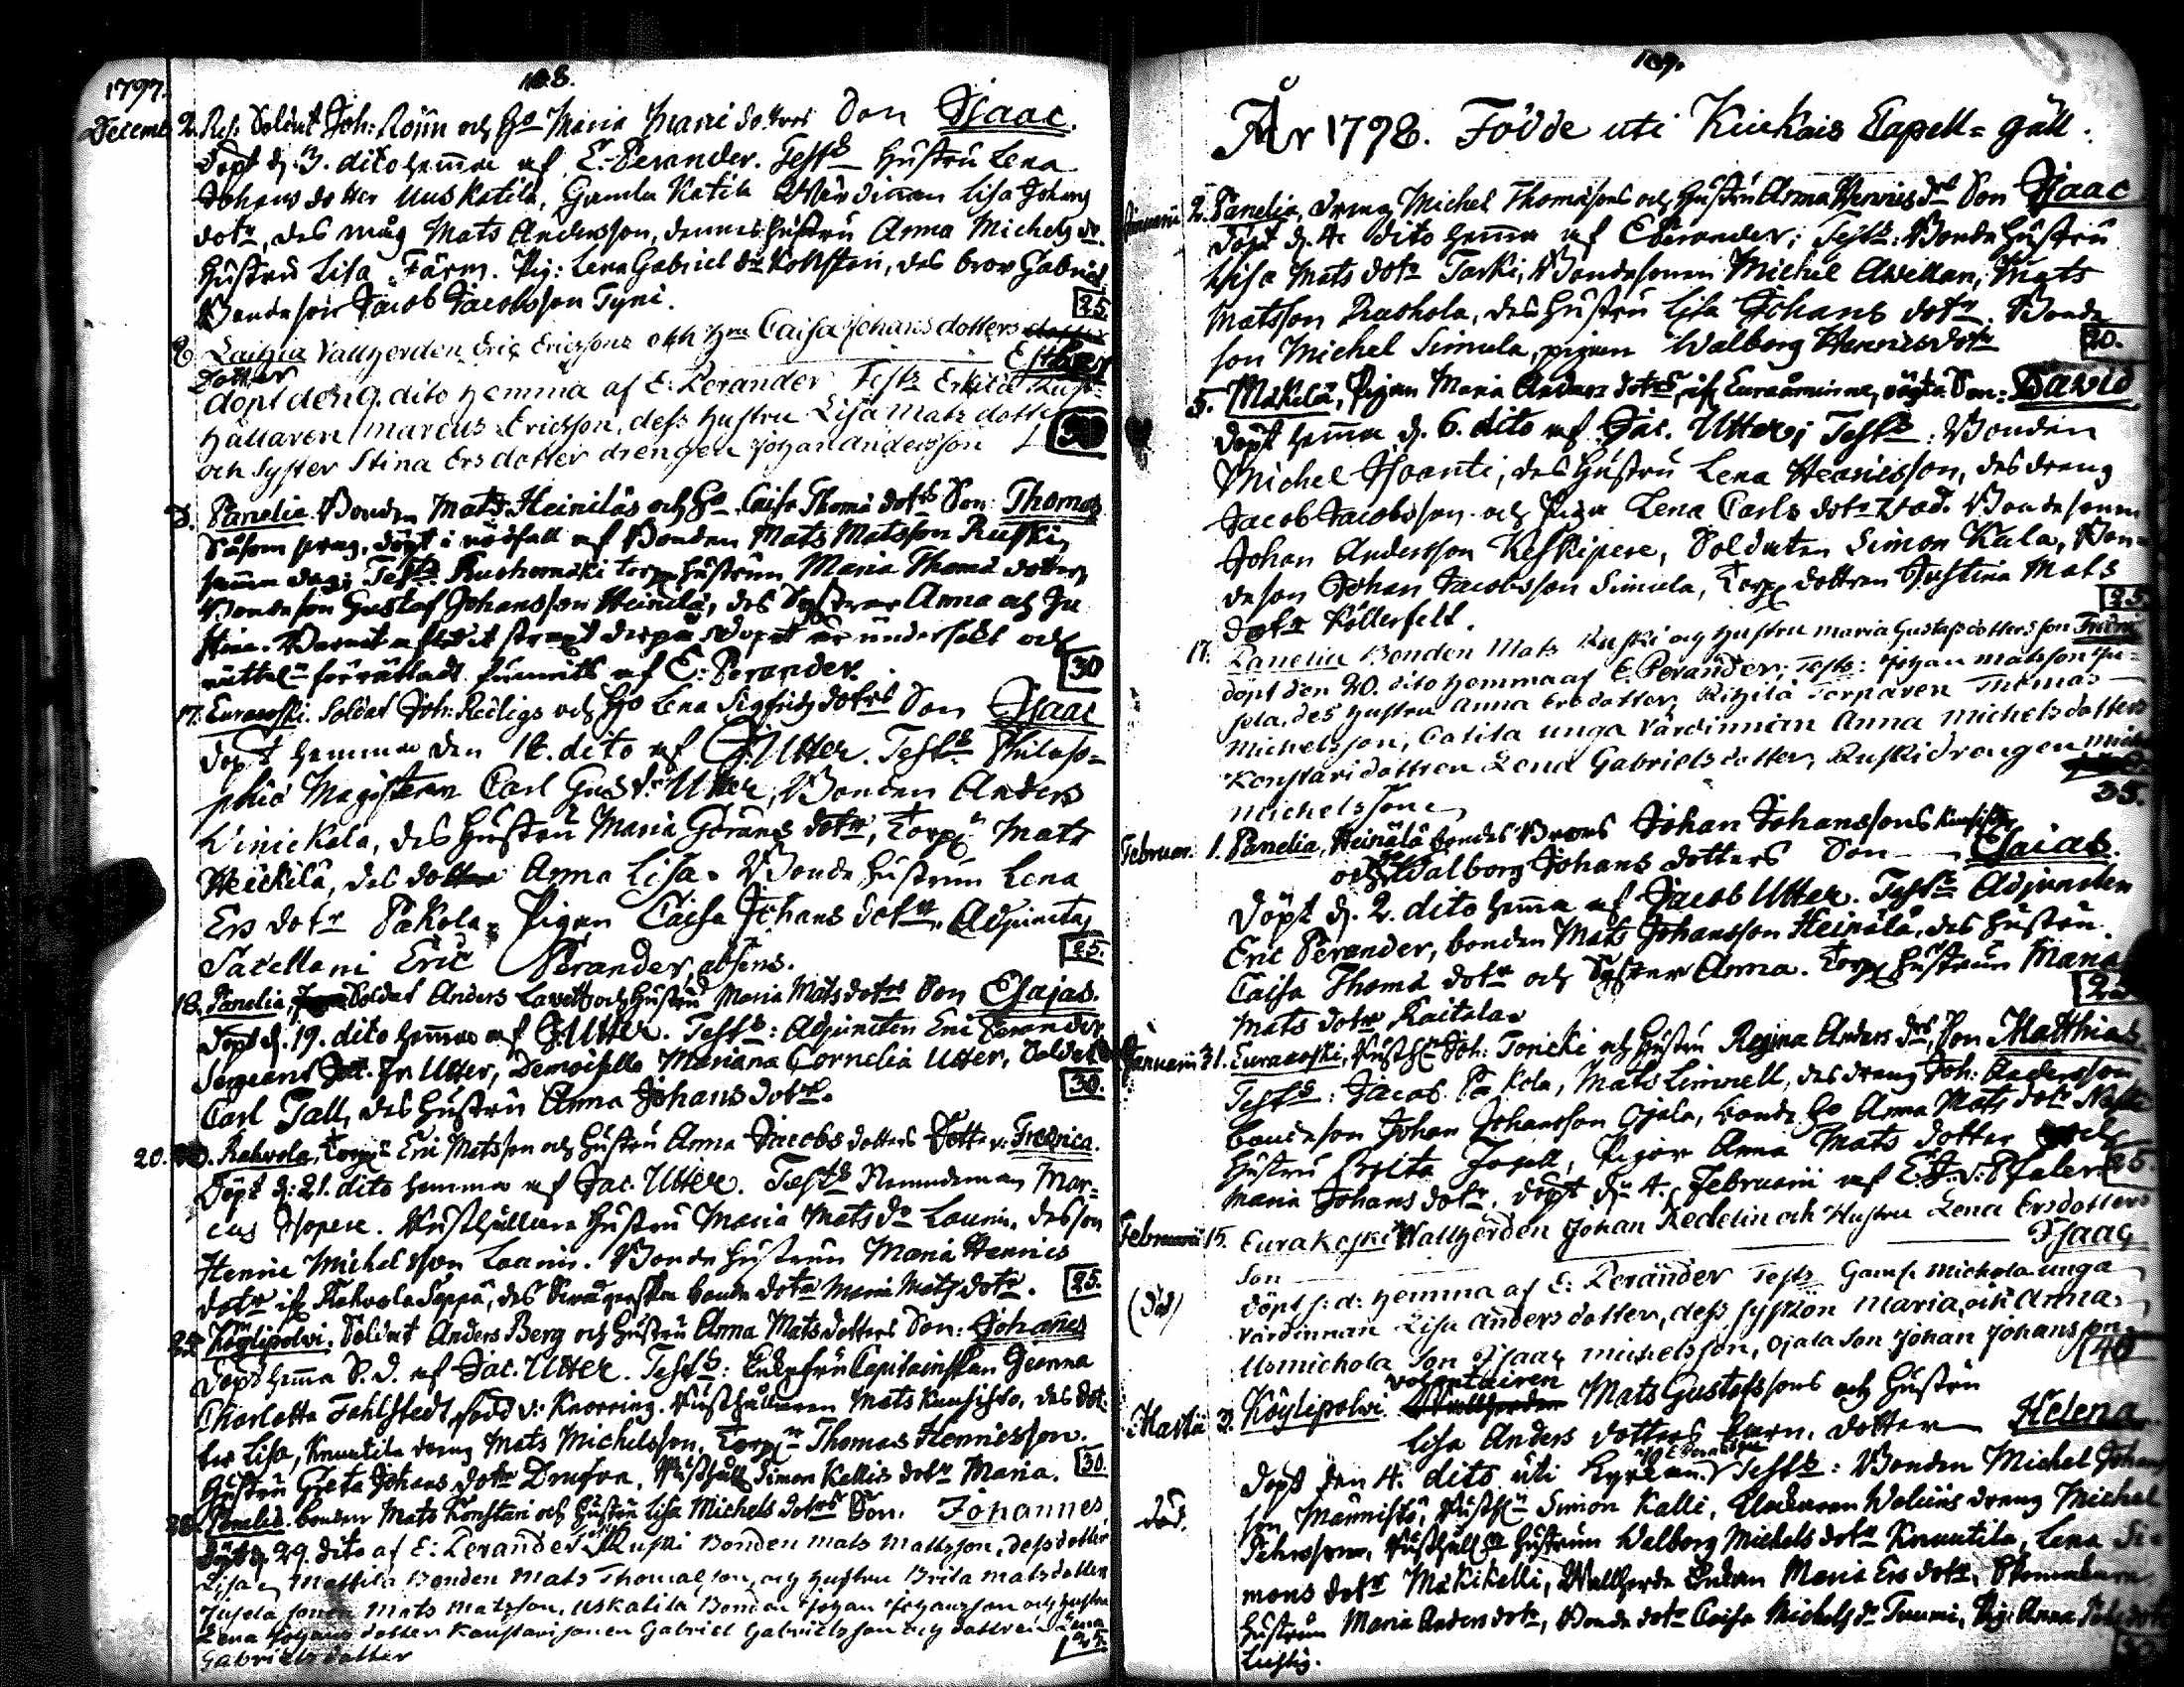 1797.
108.
Decemb. 2. Res: Soldat Joh: Rönn och Ho Maria Mariæ dotters Son Isaac.
döpt d. 3. dito hemma af E: Perander. Tests Hustru Lena
Johans dotter Uuskatila, Gamla Katila Wärdinnan Lisa Johans
dotr, des måg Mats Andersson, dennes hustru Anna Michels dr.
Hustru Lisa Färm. Pig: Lena Gabriel dr Konstari, des bror Gabriel
Bondeson Jacob Jacobsson Tyni.
25.
8. Laihia Vallherden Eric Ericssons och Hu Caisa Johans dotters
Dotter Esther
döpt den 9. dito hemma af E: Perander Tests Erkilä Rust-
hållaren Marcus Ericsson, dess hustru Lisa Mats dotter
och Syster Stina Ers dotter drengen Johan Andersson
30
D. Panelia Bonden Mats Heiniläs och Ho Caisa Thomæ dotrs Son Thomas
Såsom svag, döpt i nödfall af Bonden Mats Matsson Ruski
samma dag; Tests Ruohomäki torp hustrun Maria Thomæ dotter,
Bondeson Gustaf Johansson Heinilä, des Systrar Anna och Ju
stina. Barnet afledit straxt derpå. Dopet är undersökt och
rätteln förrättadt funnits af E: Perander.
30
17. Euraooski. Soldat Joh: Redligs och Ho Lena Sigfrids dotrs Son Isaac
döpt hemma den 18. dito af J. Utter. Tests Philoso-
phiæ Magistern Carl Gust: Utter, Bonden Anders
Winickala, des hustru Maria Görans dotr, Torp: Mats
Heickilä, des dotter Anna Lisa. Bonde hustrun Lena
Ers dotr Pakola. Pigan Caisa Johans dotr. Adjuncten
Sacellani Eric Perander, absens.
25.
18. Panelia, Soldat Anders Lavett och hustru Maria Mats dotrs Son Esajas.
Döpt d. 19. dito hemma af J. Utter. Tests: Adjuncten Eric Perander
Sergeant Fr Utter, Demoiselle Mariana Cornelia Utter, Soldat
Carl Tall, des hustru Anna Johans dotr.
30.
20. Rahvola, Torp: Eric Matsson och hustru Anna Jacobs dotters Dotter: Fredrica.
Döpt d: 21. dito hemma af Jac. Utter. Tests Nemndeman Mar-
cus Isopere. Rusthållare hustru Maria Mats dr Launi, des son
Henric Michelsson Launi. Bonde hustrun Maria Henrics
dotr ifr Rahvola Seppä, des Swägerska bonde dotr Maria Mats dotr.
25.
Köylipolvi. Soldat Anders Berg och hustru Anna Mats dotters Son: Johanes
Döpt hemma S. D. af Jac: Utter. Tests: Enkefru Capitainskan Jeanna
Charlotta Fehlstedt, född v: Knorring. Rusthållaren Mats Kansisto, des dot-
ter Lisa, Knuutila dreng Mats Michelsson, Torp: Thomas Henricsson.
Hustru Greta Johans dotr Drufva, Rusthåll: Simon Kallis dotr Maria.
30.
28. Panelia. bonden Mats Konstari och hustru Lisa Michels dotrs Son. Johannes
döpt d. 29. dito af E: Perander Tests Ruski Bonden Mats Mattsson, dess dotter
Lisa, Mattila Bonden Mats Thomasson och hustru Brita Matsdotter
Jusela sonen Mats Matsson, Uskatila Bonden Johan Johansson och hustru
Lena Johans dotter Konstari sonen Gabriel Gabrielsson och dottren Lena
Gabriels dotter
25.
109.
År 1798. Födde uti Kiukais Capell-gäll.
Januarii 2. Panelia, dreng Michel Thomæsons och hustru Anna Henrics drs Son Isaac
Döpt d. 4. dito hemma af E Perander; Tests: Bonde hustru
Lisa Mats dotr Taski, Bondesonen Michel Awellan, Mats
Matsson Ruohola, des hustru Lisa Johans dotr. Bonde
son Michel Simula, pigan Walborg Henricsdotr
20.
5. Mäkelä, Pigan Maria Anders dotrs, ifr Euraåminne, oägta Son: David
döpt hemma d. 6. dito af Jac. Utter; Tests: Bonden
Michel Isoanti, des hustru Lena Henricsson, des dreng
Jacob Jacobsson och Pigan Lena Carls dotr Stad. Bondesonen
Johan Andersson Keskipere, Soldaten Simon Kala, Bon-
deson Johan Jacobsson Simula, Torp: dottren Justina Mats
dotr Köllerfelt.
25
17. Panelia Bonden Mats Ruski och hustru Maria Gustafs dotters son
döpt den 20. dito hemma af E. Perander; Tests: Johan Matsson Ju-
sola, des hustru Anna Ersdotter, Kihilä Torparen Thomas
Michelsson, Catila unga Värdinnan Anna Michelsdotter
Konstari dottren Lena Gabriels dotter, Ruski drengen
Michelsson
35.
Februar. 1. Panelia, Heinälä bondes Brors Johan Johanssons
och Walborg Johans dotters Son Esaias.
Döpt d. 2. dito hemma af Jacob Utter. Tests Adjuncten
Eric Perander, bonden Mats Johansson Heinälä, des hustru
Caisa Thomæ dotr och Syster Anna. Torp hustrun Maria
Mats dotr Raitala
Januarii 31. Euraooski, Rusth: Joh: Toricki och hustru Regina Anders drs, Son Matthias
Tests: Jacob Pakola, Mats Linnell, des dreng Joh: Andersson
bondeson Johan Johansson Ojala, bonde Ho Anna Mats dotr
hustru Brita Jogell, Pigor Anna Mats dotter och
Maria Johans dotr. döpt d 4. Februarii af E. J. v: Pfaler
25.
Februarii 15. Eurakoski Wallherden Johan Redelin och Hustru Lena Ersdotters
Son Isaac
döpt s: d: hemma af E: Perander Tests Gamf. Mickola unga
(död)
värdinnan Lisa Anders dotter, dess syskon Maria och Anna
Usmichola Son Isaac Michelsson, Ojala Son Johan Johansson
40
Martii 3. Köylipolvi volontairen Mats Gustafssons och hustru
Lisa Anders dotters barn, dotter Helena
Döpt den 4. dito uti kyrkan af E Perander Tests: Bonden Michel Johans
son Männistö, Rusth: Simon Kalli, Klockaren Walens dreng Michel
död.
Rusthåll: hustrun Walborg Michels dotr Knuutila, Lena Si-
mons dotr Mäkikalli, Wallherde Enkan Maria Ers dotr,
hustrun Maria Anders dotr, Bonde dotr Caisa Michels dr Tuomi, Pig: Anna
Lustig.